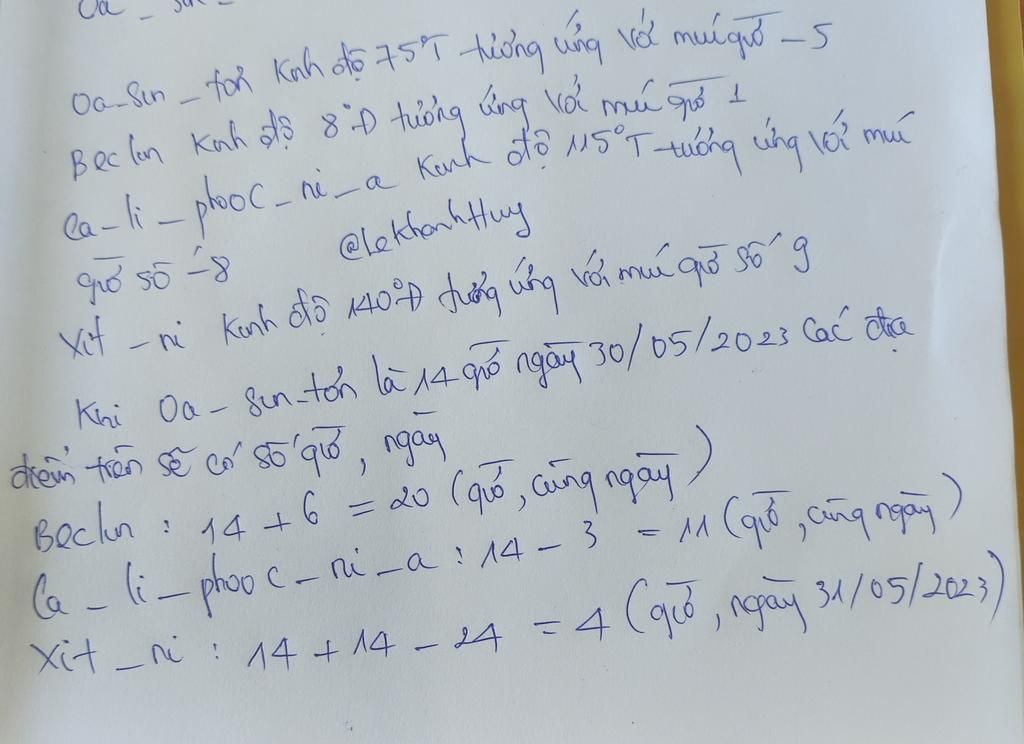 Oa_sin_
Oa_Sin_tơn Kinh độ 75°T tương ứng với múi giờ -5
Beclin Kinh độ 8°Đ tương ứng với múi giờ 1
Ca_li_phooc_ni_a Kinh độ 115°T tương ứng với múi
giờ số -8 @LeKhanhHuy
Xit_ni Kinh độ 140°Đ tương ứng với múi giờ số 9
Khi Oa_Sin_tơn là 14 giờ ngày 30/05/2023 Các địa
điểm trên sẽ có số giờ, ngày
Beclin : 14 + 6 = 20 (giờ, cùng ngày)
Ca_li_phooc_ni_a : 14 - 3 = 11 (giờ, cùng ngày)
Xit_ni : 14 + 14 - 24 = 4 (giờ, ngày 31/05/2023)